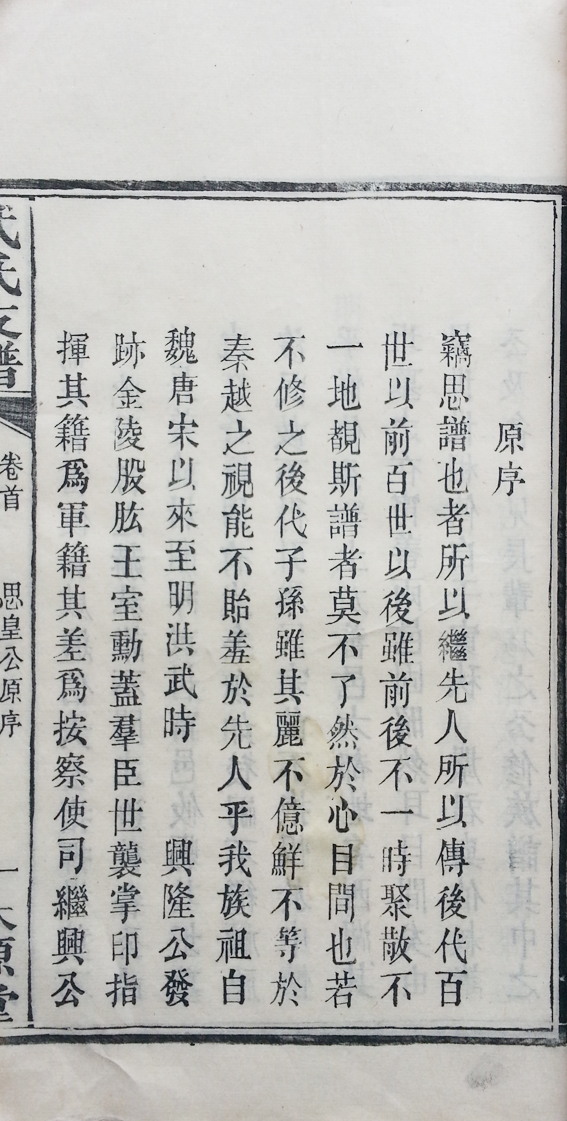 原序
竊思譜也者所以繼先人所以傳後代百
世以前百世以後雖前後不一時聚散不
一地覩斯譜者莫不了然於心目間也若
不修之後代子孫雖其麗不億鮮不等於
秦越之視能不貽羞於先人乎我族祖自
魏唐宋以來至明洪武時　興隆公發
跡金陵股肱王室勳蓋羣臣世襲掌印指
揮其籍爲軍籍其差爲按察使司繼興公
氏支譜
卷首
思皇公原序
一
原堂